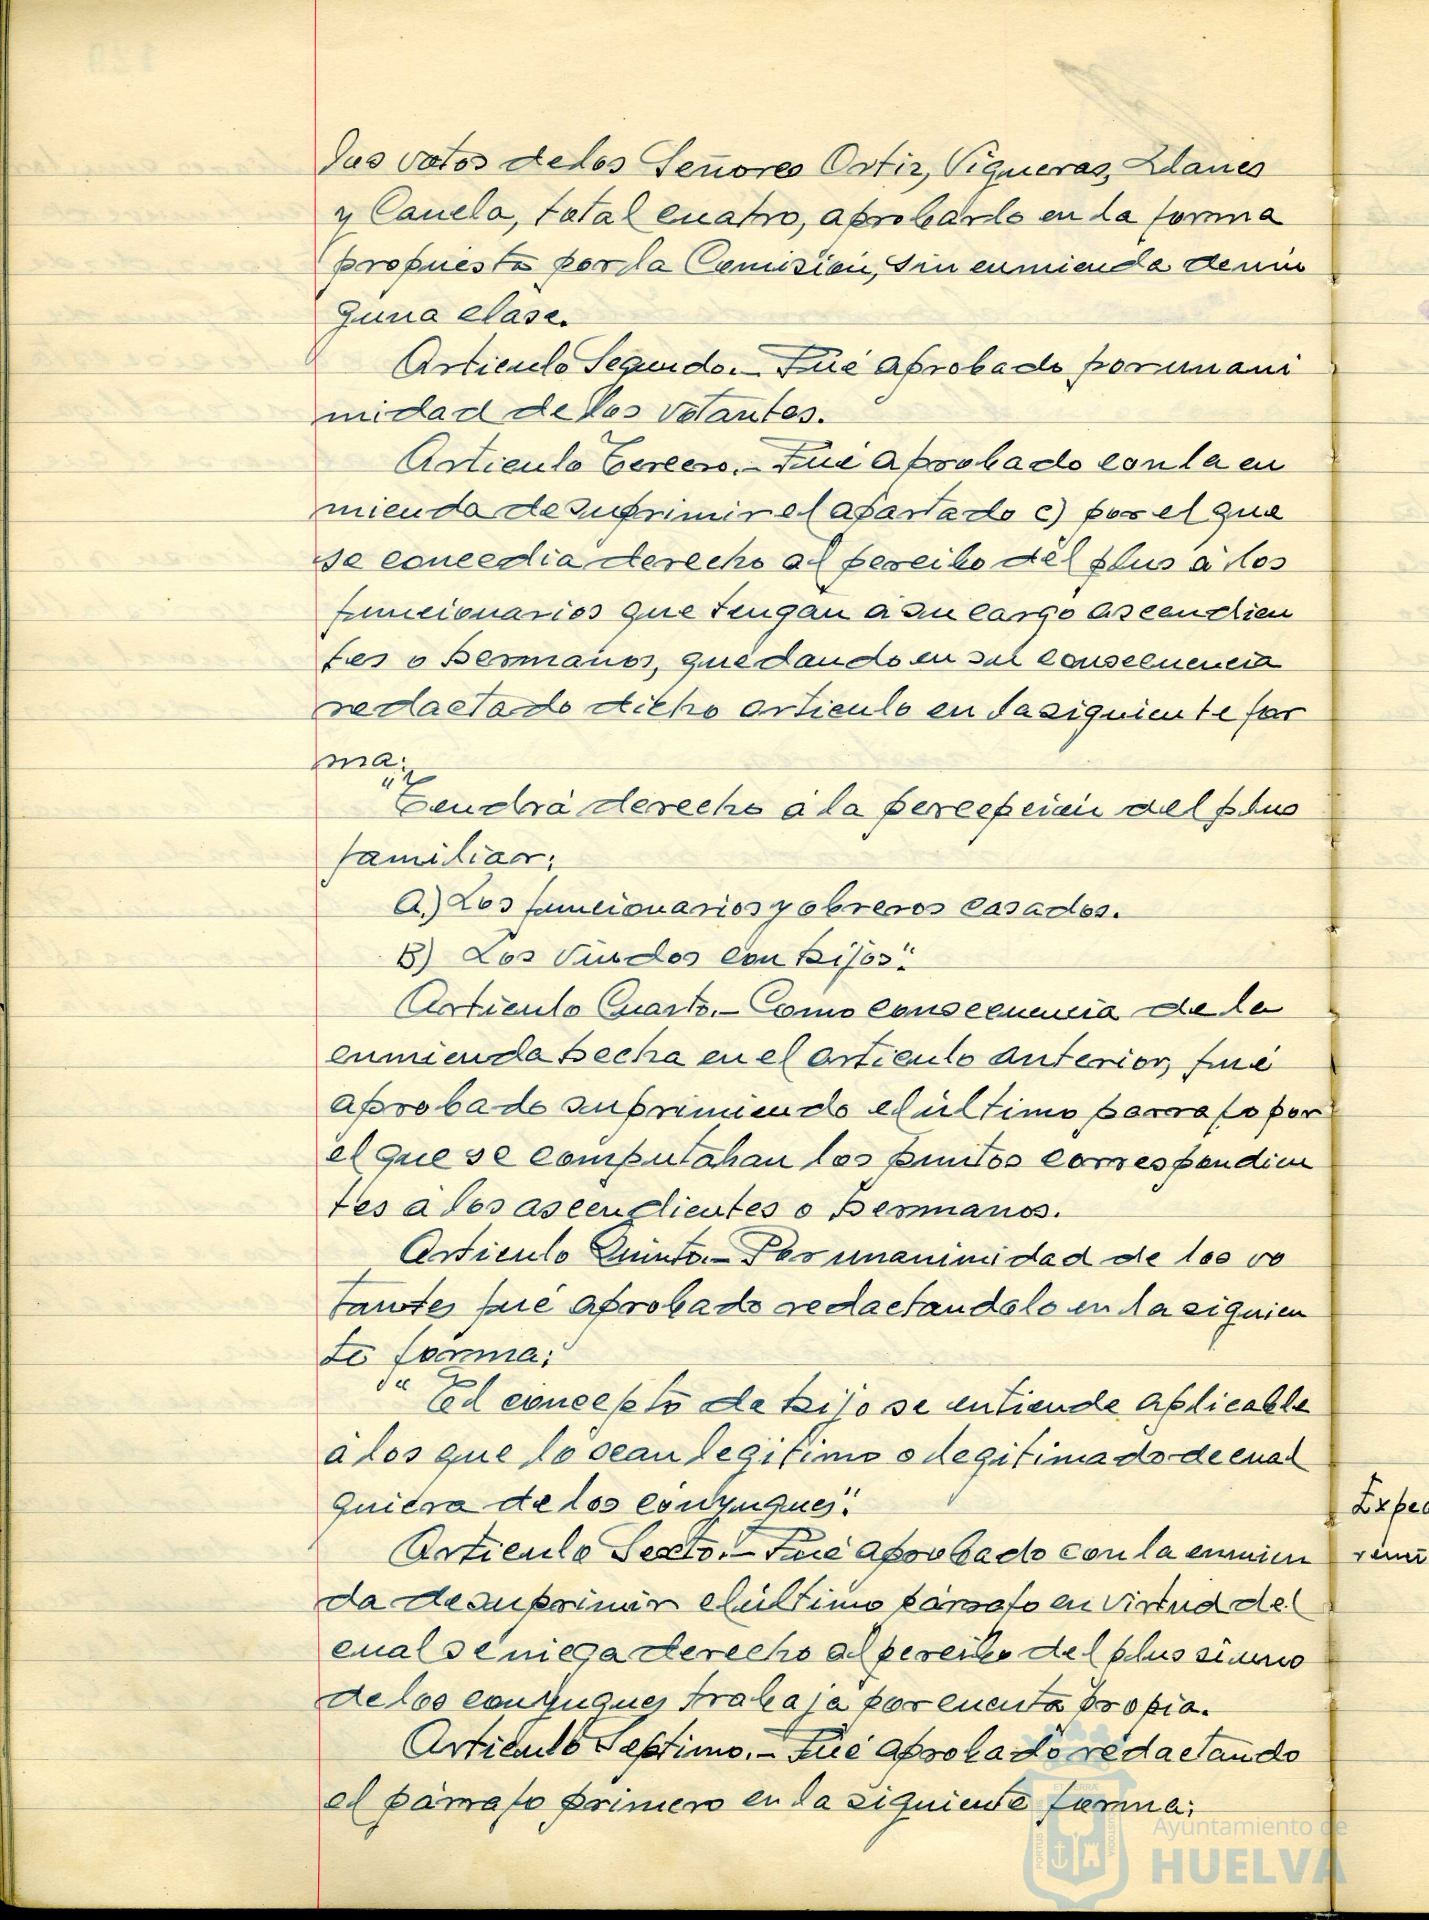 los votos de los Señores Ortiz, Vigueras, Llanes
y Canela, total cuatro, aprobarlo en la forma
propuesta por la Comisión, sin enmienda de nin
guna clase.
Articulo Segundo.- Fué aprobado por unani
midad de los votantes.
Articulo Tercero.- Fué aprobado con la en
mienda de suprimir el apartado c) por el que
se concedia derecho al percibo del plus á los
funcionarios que tengan á su cargo ascendien
tes o hermanos, quedando en su consecuencia
redactado dicho articulo en la siguiente for
ma:
"Tendrá derecho á la percepción del plus
familiar:
A.) Los funcionarios y obreros casados.
B) Los viudos con hijos".
Articulo Cuarto.- Como consecuencia de la
enmienda hecha en el articulo anterior, fué
aprobado suprimiendo el último parrafo por
el que se computaban los puntos correspondien
tes á los ascendientes o hermanos.
Articulo Quinto.- Por unanimidad de los vo
tantes fué aprobado redactandolo en la siguien
te forma:
"El concepto de hijo se entiende aplicable
á los que lo sean legitimo o legitimado de cual
quiera de los cónyugues".
Articulo Sexto.- Fué aprobado con la enmien
da de suprimir el último párrafo en virtud del
cual se niega derecho al percibo del plus si uno
de los conyugues trabaja por cuenta propia.
Articulo Septimo.- Fué aprobado redactando
el párrafo primero en la siguiente forma:
Exped
Ayuntamiento de
HUELVA